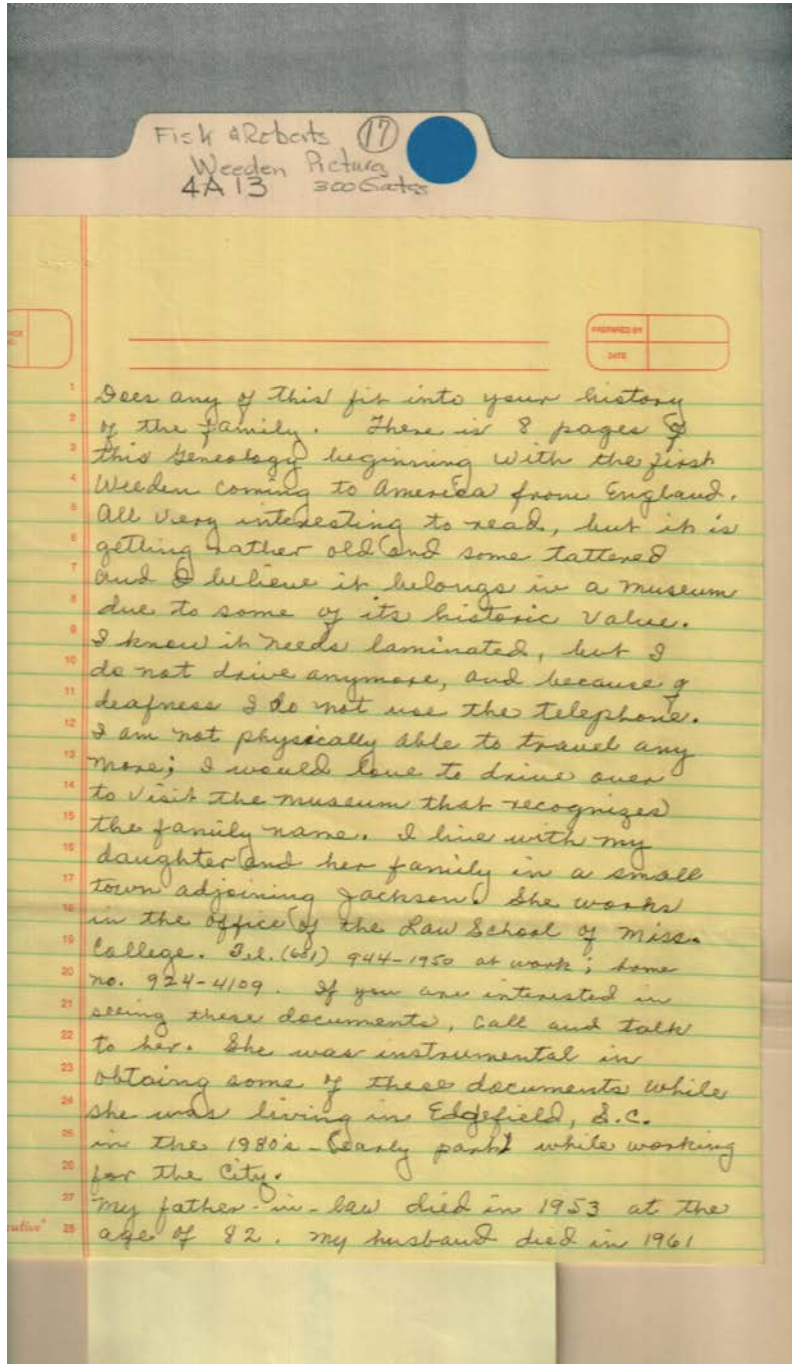 Fisk & Roberts 17
Weeden Picture
4A13 300 Gates
PREPARED BY
DATE
1 Does any of this fit into your history
2 of the family. There is 8 pages of
3 this Genealogy beginning with the first
4 Weeden coming to America from England.
5 All very interesting to read, but it is
6 getting rather old and some tattered
7 and I believe it belongs in a museum
8 due to some of its historic value.
9 I know it needs laminated, but I
10 do not drive anymore, and because of
11 deafness I do not use the telephone.
12 I am not physically able to travel any
13 more; I would love to drive over
14 to visit the museum that recognizes
15 the family name. I live with my
16 daughter and her family in a small
17 town adjoining Jackson. She works
18 in the office of the Law School of Miss.
19 College. Tel. (601) 944-1950 at work; home
20 no. 924-4109. If you are interested in
21 seeing these documents, call and talk
22 to her. She was instrumental in
23 obtaing some of these documents while
24 she was living in Edgefield, S.C.
25 in the 1980's - (early part) while working
26 for the City.
27 My father-in-law died in 1953 at the
28 age of 82. My husband died in 1961